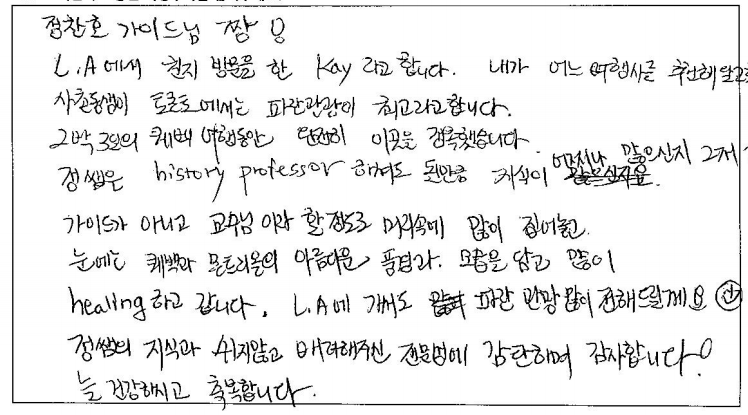 정찬호 가이드님 짱!
L.A에서 현지 방문을 한 Kay 라고 합니다. 내가 어느 여행사를 추천해 달라고
사촌동생이 토론토에서는 파란관광이 최고라고 합니다.
2박 3일의 퀘벡 여행동안 완전히 이곳을 정복했습니다.
정쌤은 history professor 해도 될만큼 지식이 어찌나 많으신지 그저
가이드가 아니고 교수님 이라 할 정도로 머리속에 많이 집어넣고
눈에는 퀘백과 몬트리올의 아름다운 풍경과 모습을 담고 많이
healing 하고 갑니다. L.A에 가서도 파란 관광 많이 전해드릴께요
정쌤의 지식과 쉬지않고 배려해주신 전문성에 감탄하며 감사합니다!
늘 건강하시고 축복합니다.